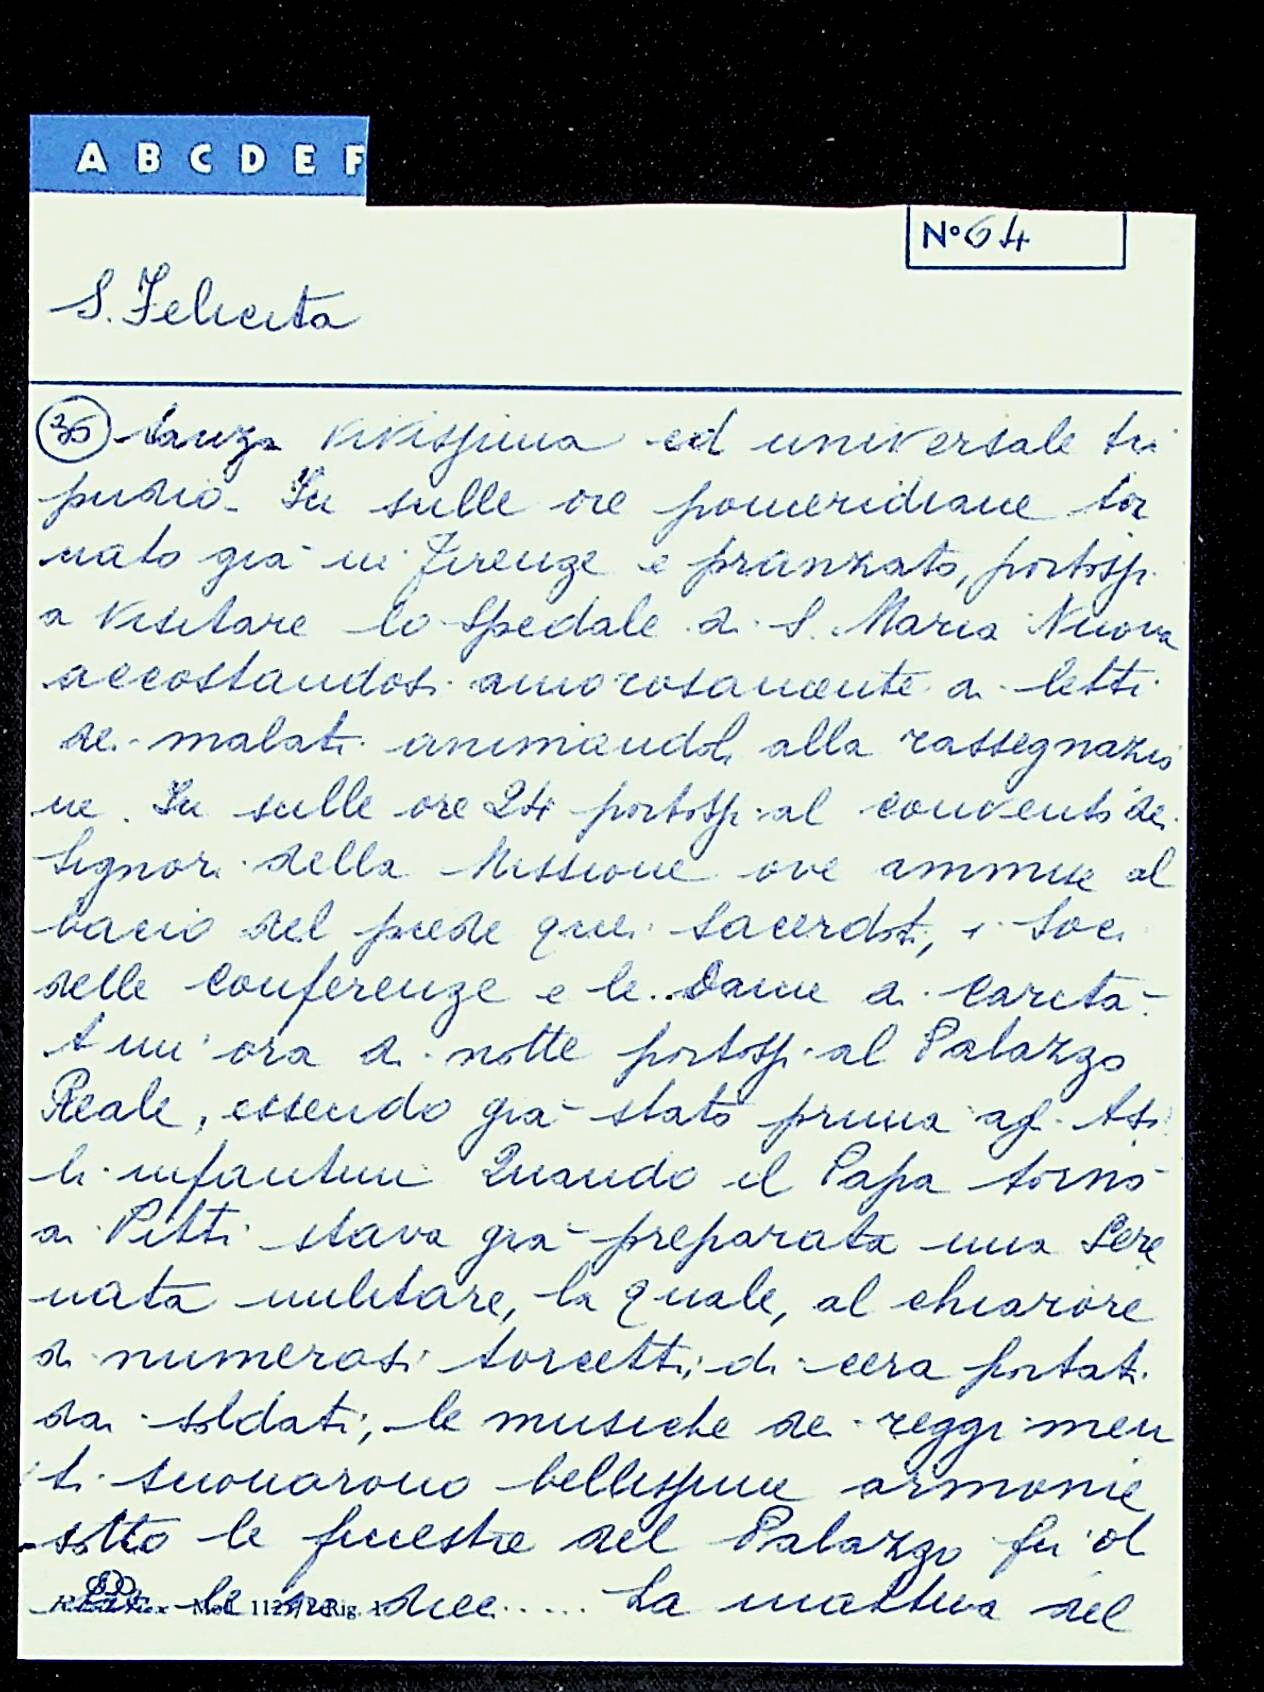 A B C D E F
N° 64
S. Felicita
36 tanza vivissima ed universale tri
pudio. In sulle ore pomeridiane tor
nato già in Firenze e pranzato, portossi
a visitare lo Spedale di S. Maria Nuova
accostandosi amorosamente ai letti
dei malati animandoli alla rassegnazio
ne. In sulle ore 24 portossi al convento dei
Signori della Missione ove ammise al
bacio del piede quei Sacerdoti, i Soci
delle conferenze e le Dame di carità
A un'ora di notte portossi al Palazzo
Reale, essendo già stato prima agli Asi
li infantini Quando il Papa tornò
ai Pitti stava già preparata una Sere
nata militare, la quale, al chiarore
di numerosi torcetti, di cera portati
dai soldati, le musiche dei reggimen
ti suonarono bellissime armonie
sotto le finestre del Palazzo fin ol
le dieci ..... La mattina del